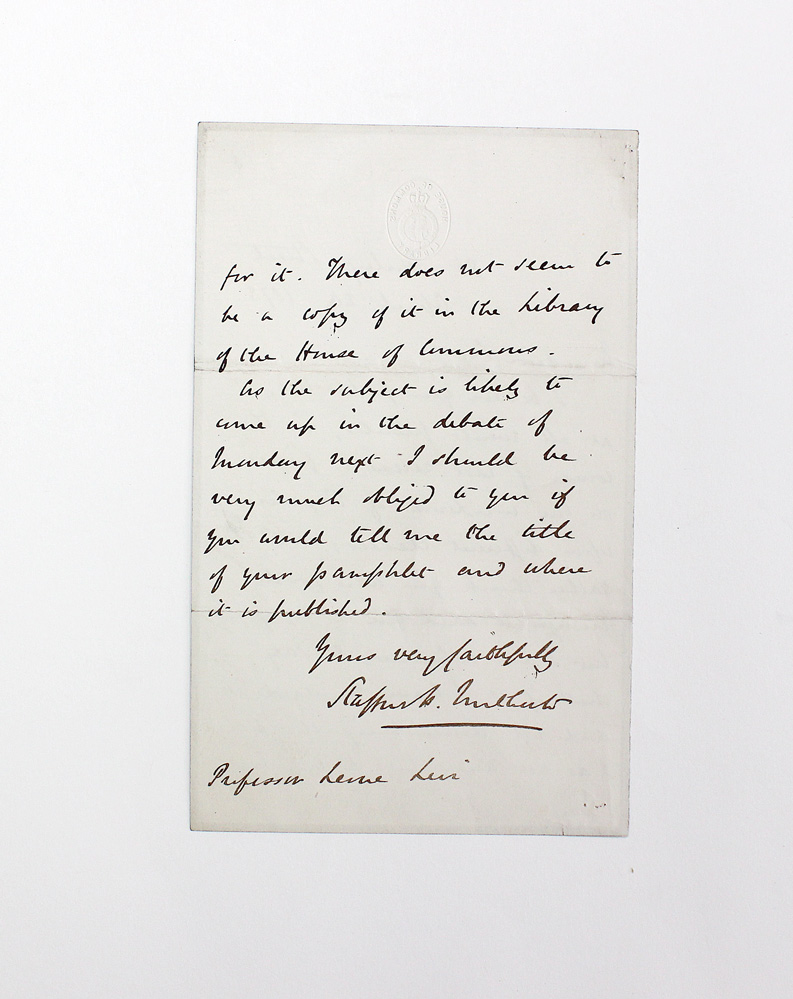 for it. There does not seem to
be a copy of it in the Library
of the House of Commons.
As the subject is likely to
come up in the debate of
Monday next I should be
very much obliged to you if
you would tell me the title
of your pamphlet and where
it is published.
Yours very faithfully
Stafford H. Northcote
Professor Leone Levi